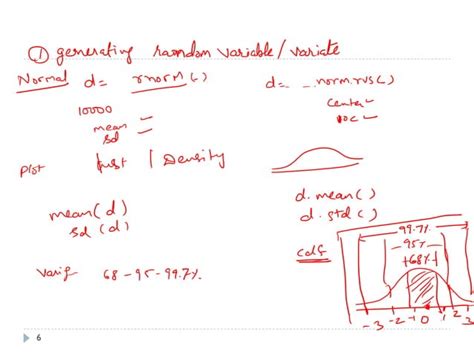 ① generating random variable/variate
Normal d= rnorm() d= ...norm.rvs()
10000 center
mean loc
sd
Plot hist | Density
mean(d) d.mean()
sd(d) d.std()
99.7%
95%
cdf 68%
Verify 68-95-99.7%.
-3 -2 -1 0 1 2 3
6